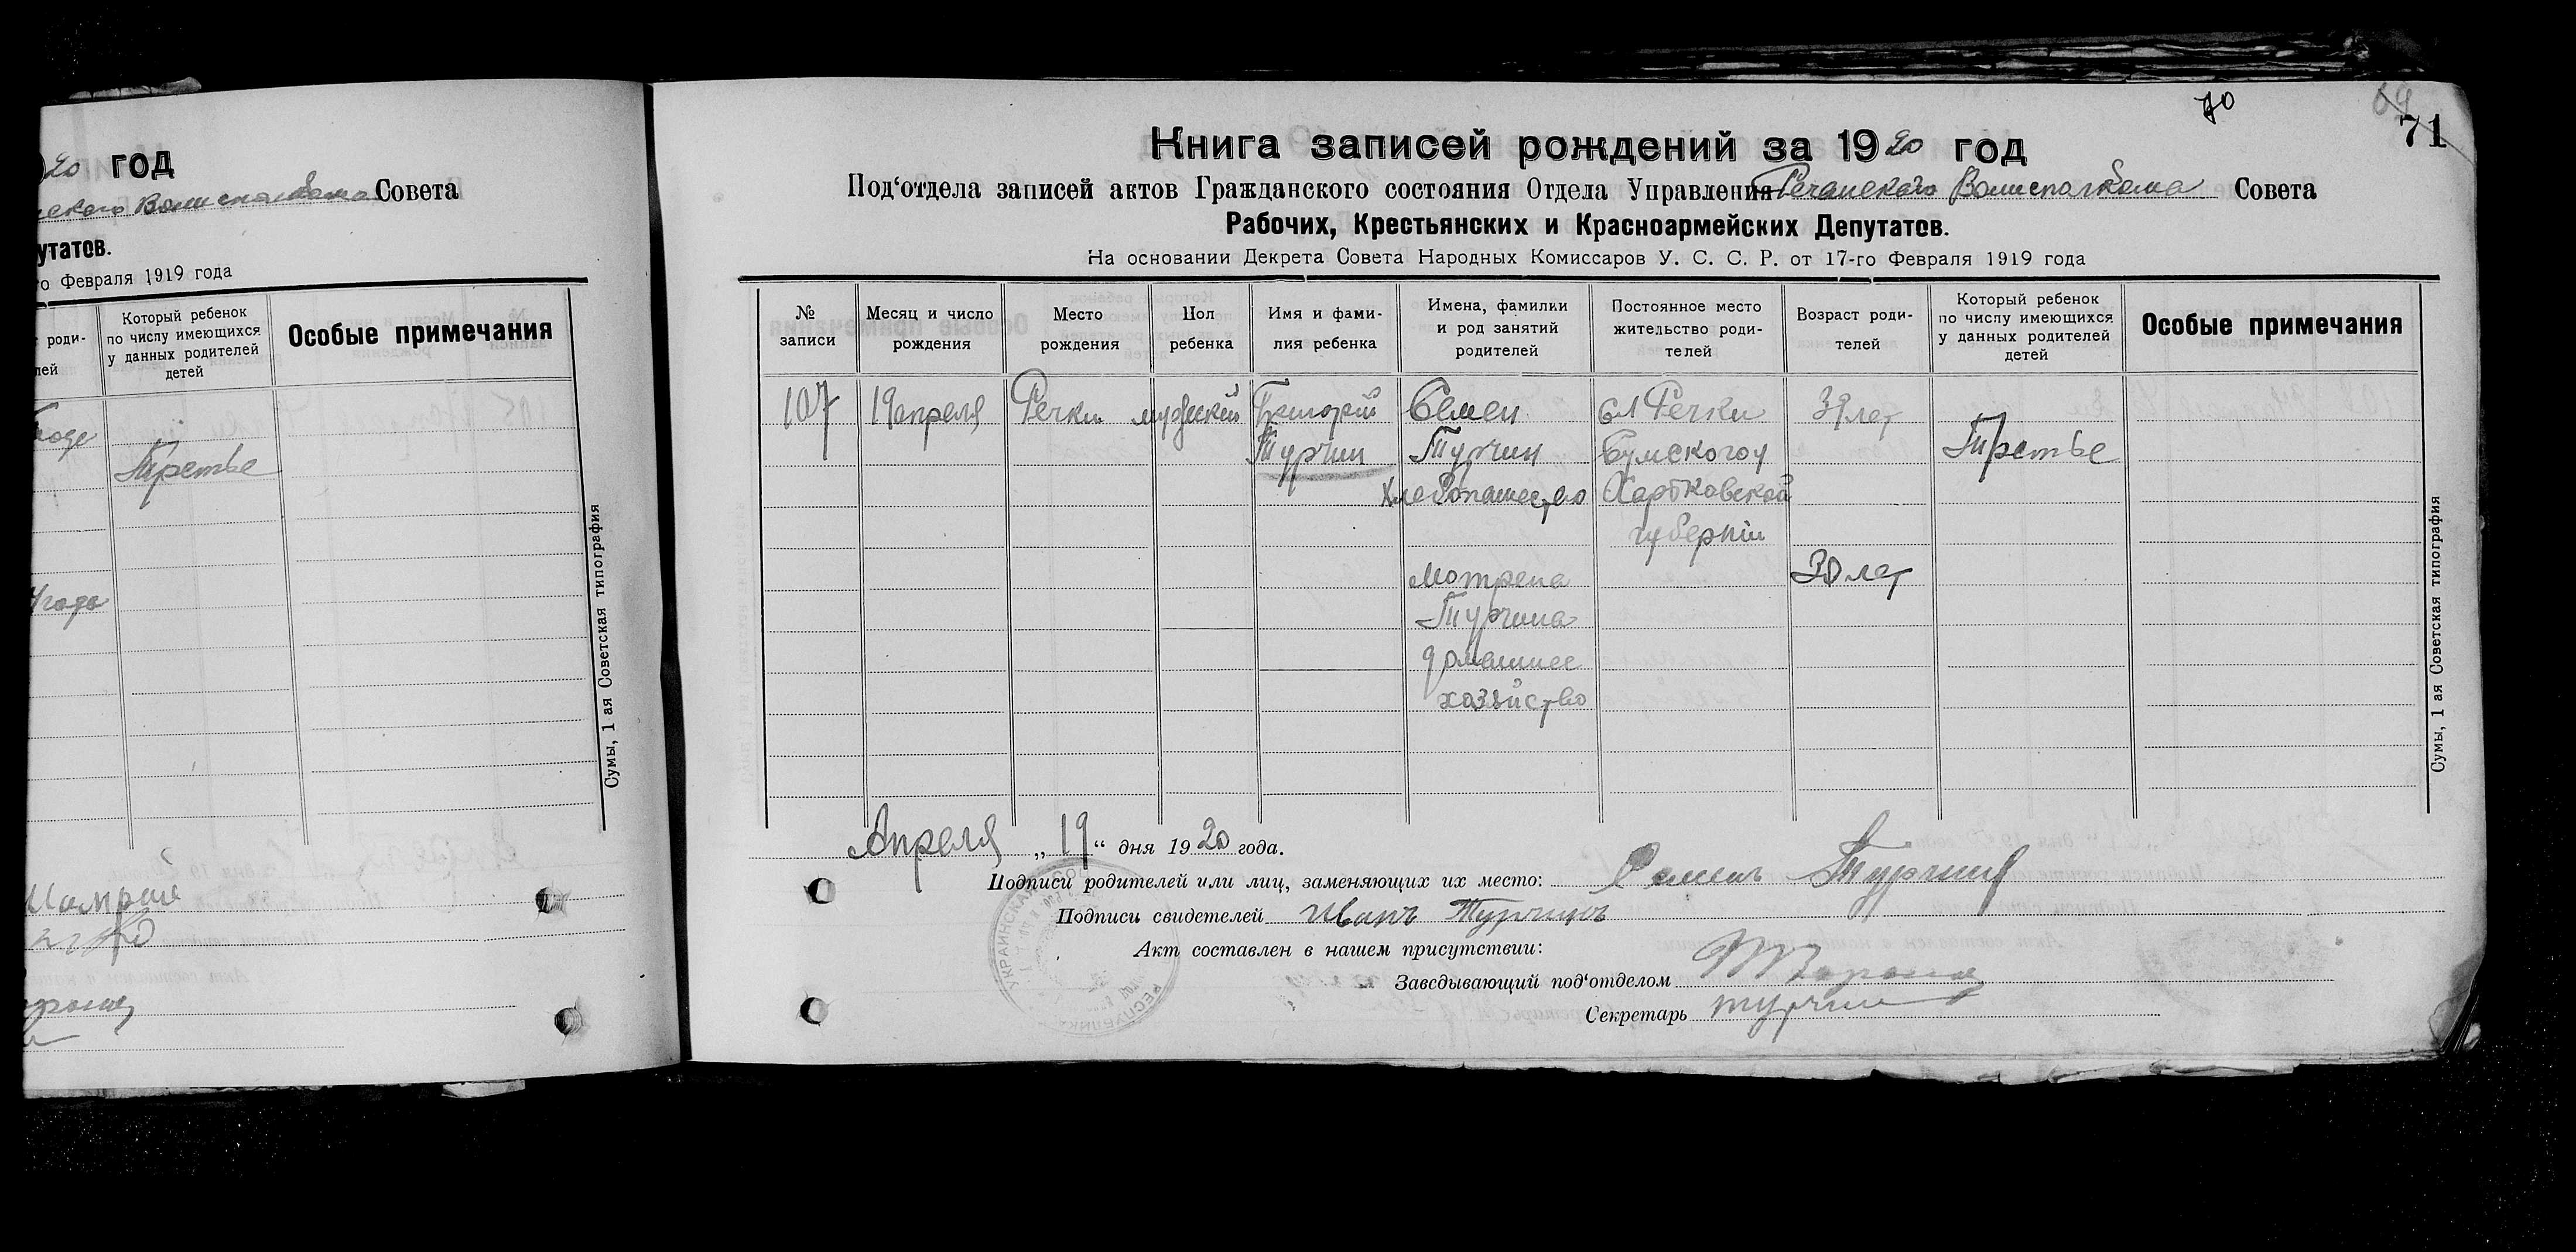 20 год
Совета
утатов.
го Февраля 1919 года
роди-
лей
Который ребенок
по числу имеющихся
у данных родителей
детей
Особые примечания
Третье
Сумы, 1 ая Советская типография
70
69
71
Книга записей рождений за 1920 год
Под‘отдела записей актов Гражданского состояния Отдела Управления Речанского Волисполкома Совета
Рабочих, Крестьянских и Красноармейских Депутатов.
На основании Декрета Совета Народных Комиссаров У. С. С. Р. от 17-го Февраля 1919 года
№
записи
Месяц и число
рождения
Место
рождения
Пол
ребенка
Имя и фами-
лия ребенка
Имена, фамилии
и род занятий
родителей
Постоянное место
жительство роди-
телей
Возраст роди-
телей
Который ребенок
по числу имеющихся
у данных родителей
детей
Особые примечания
107
19 апреля
Речки
мужский
Григорий
Турчин
Семен
Турчин
Хлебопашество
Мотрена
Турчина
домашнее
хозяйство
сл Речки
Сумского у
Харьковской
губернии
39 лет
30 лет
Третье
Сумы, 1 ая Советская типография
Апреля „19“ дня 1920 года.
Подписи родителей или лиц, заменяющих их место: Семенъ Турчин
Подписи свидетелей Иванъ Турчинъ
Акт составлен в нашем присутствии:
Заведывающий под‘отделом
Секретарь Турчин
УКРАИНСКАЯ
РЕСПУБЛИКА